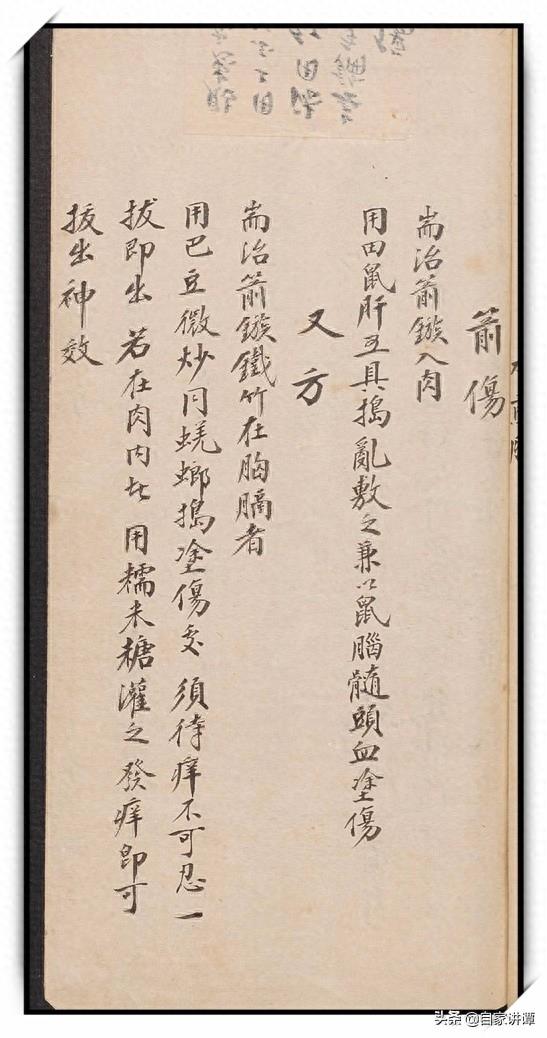 箭傷
耑治箭鏃入肉
用田鼠肝五具搗亂敷之兼以鼠腦髓頭血塗傷
又方
耑治箭鏃鐵竹在胸膈者
用巴豆微炒同蜣螂搗塗傷处 須待痒不可忍一
拔即出 若在肉内者 用糯米糖灌之發痒即可
拔出神效
头条 @自家讲谭